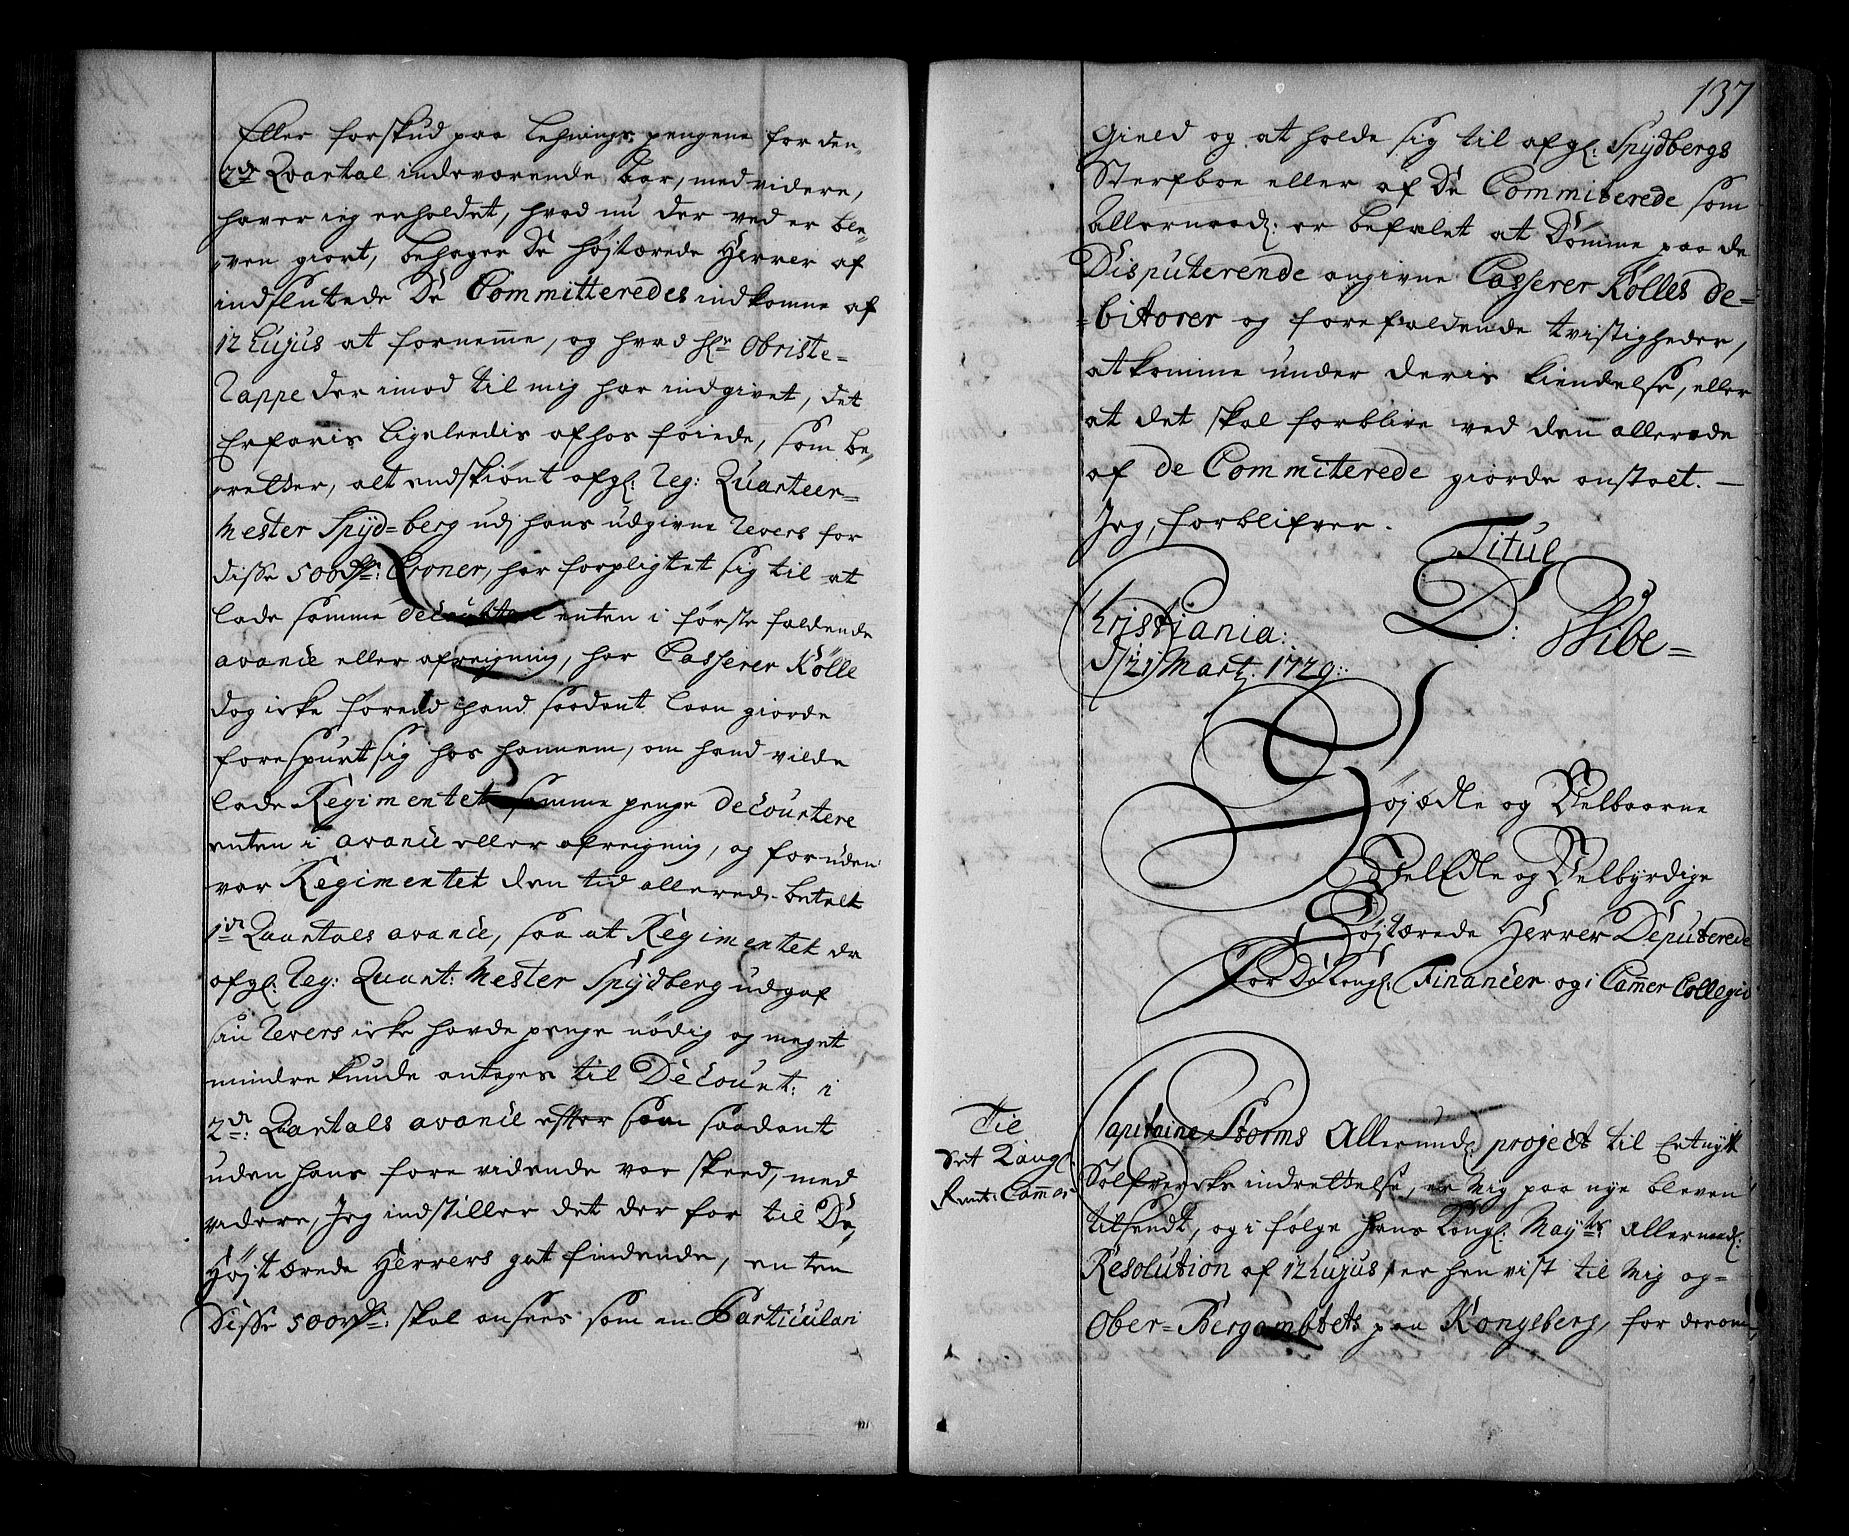 Eller forskud paa lehnings pengene for den
2de Qvartal indeværende Aar, med videre,
haver ieg erholdet, hvad nu der ved er ble-
ven giort, behager De høitærede Herrer af
indslutede De Committeredes indkomne af
12 hujus at fornemme, og hvad Hr Obriste-
Rappe der imod til mig har indgivet, det
Erfaris ligeleedis af hos føiede, som be-
retter, alt endskiønt afgl: Reg: Quarteer-
Mester Spÿd=berg udj hans udgivne Revers for
disse 500 Rdr: Croner, har forpligtet sig til at
lade samme decourtere enten i første faldende
avance eller afreigning, har Casserer Kølle
dog icke førend hand saadant laan giorde
forespurt sig hos hannem, om hand vilde
lade Regimentet samme penge decourtere
enten i avance eller afreigning, og foruden
var Regimentet den tid allerede betalt
1de Quartals avance, saa at Regimentet da
afgl: Reg: Quart: Mester Spÿdberg udgaf
sin Revers icke hafde penge nødig og meget
mindre kunde antages til Decourt: i
2de: Quartals avance efter som saadant
uden hans forevidende var skeed, med
videre, Jeg indstiller det der for til De
Højtærede Herrers gotfindende, enten
Disse 500 Rdr: skal ansees som en Particulair
137
Gield og at holde sig til afgl: Spÿdbergs
Sterfboe eller af De Commiterede som
allernaad: er befalet at Dømme paa de
Disputerende angivne Casserer Kølles de=
=bitorer og forefaldende tvistigheder,
at komme under deris kiendelse, eller
at det skal forblive ved den allerede
af de Commiterede giorde anstalt. —
Jeg, forblifver.
Titul
D: Wibe=
Christiania:
d/21 Mart. 1729:
Højædle og Velbaarne
VelEdle og Velbÿrdige
Højtærede Herrer Deputerede
for De Kongl: Financer og i Cammer Collegio
Til
Det Kongl:
Rente Cammer
Capitaine Storms Allerund: project til Et nytt
Sølfvercks indrettelse, er Mig paa nye bleven
tilsendt, og i følge Hans Kongl: Mayts: Allernaad:
Resolution af 12 hujus, er henvist til Mig og=
Ober=Bergambtets paa Kongsberg, for derom,